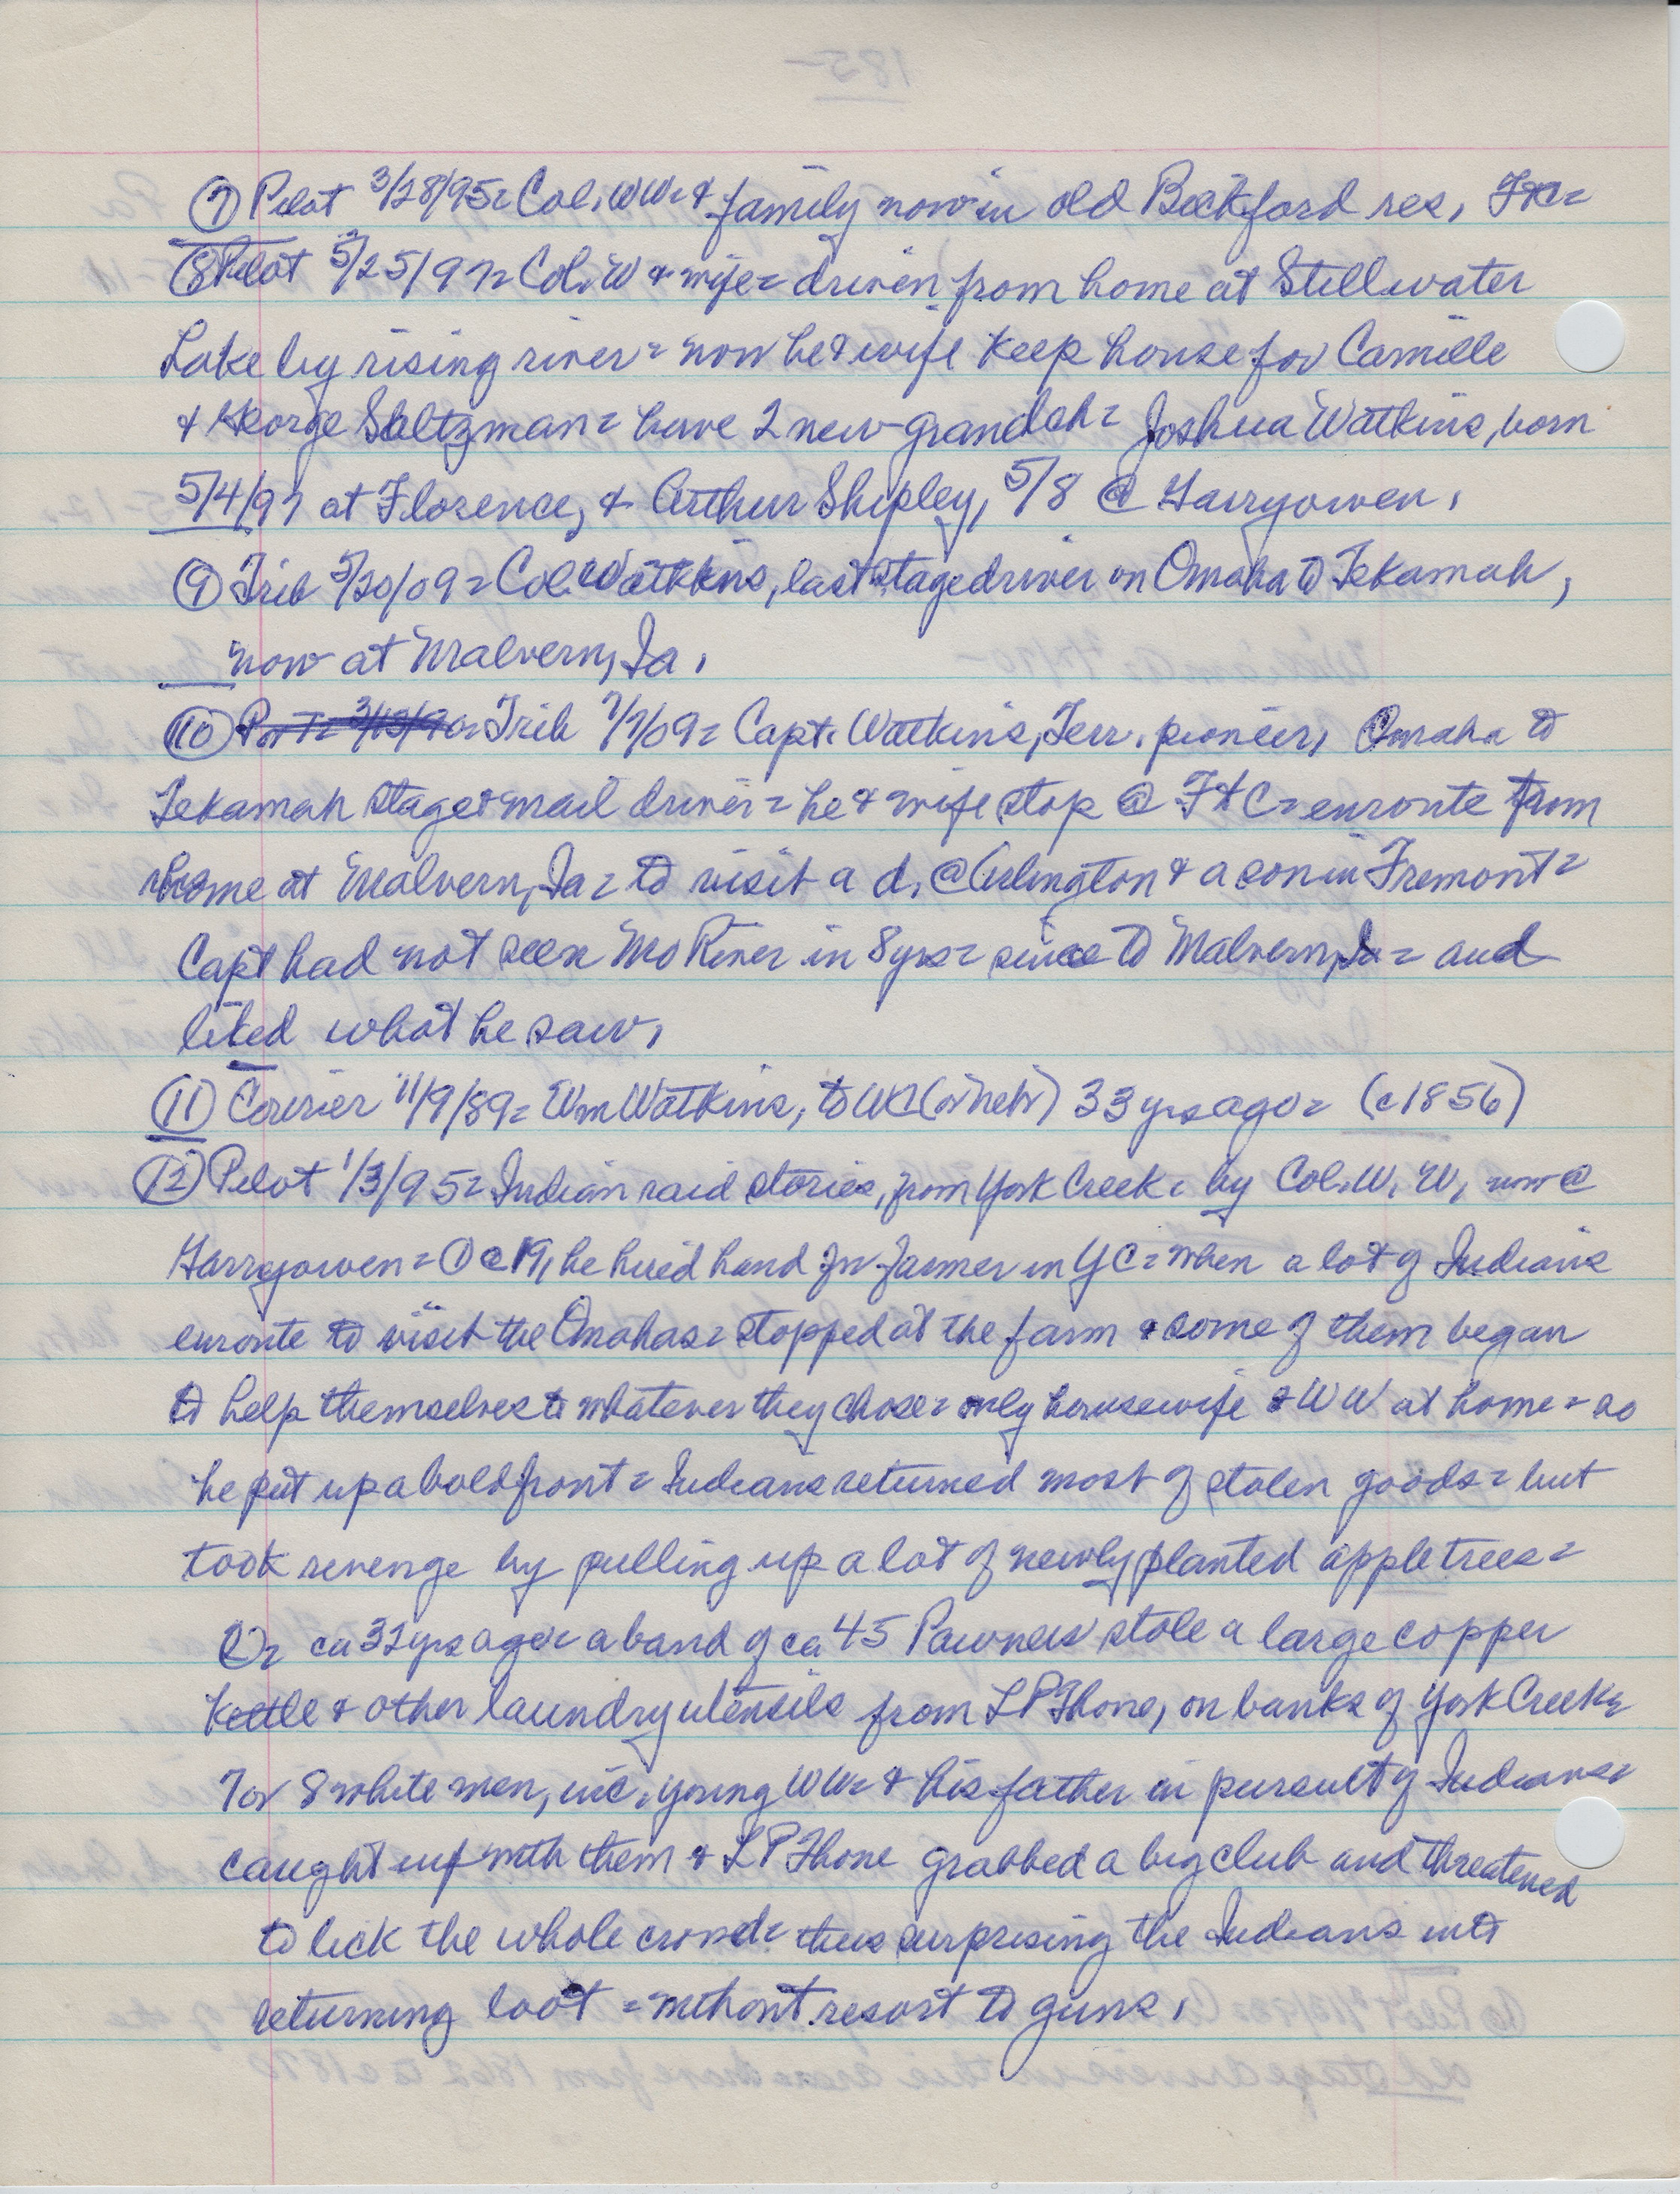 ⑦ Pilot 3/28/95= Col. WW= & family now in old Beckford res, FtC=
⑧ Pilot 5/25/97= Col. W & wife= driven from home at Stillwater
Lake by rising river= now he & wife keep house for Camille
& George Saltzman= have 2 new grandch= Joshua Watkins, born
5/4/97 at Florence, & Arthur Shipley, 5/8 @ Garryowen.
⑨ Trib 5/20/09= Col. Watkins, last stage driver on Omaha to Tekamah,
now at Malvern, Ia.
⑩ Trib 7/7/09= Capt. Watkins, Terr. pioneer, Omaha to
Tekamah stage & mail driver= he & wife stop @ FtC= enroute from
home at Malvern, Ia= to visit a d. @ Arlington & a son in Fremont=
Capt had not seen Mo River in 8 yrs= since to Malvern, Ia= and
liked what he saw.
⑪ Courier 11/9/89= Wm Watkins, to WC (or Nebr) 33 yrs ago= (c1856)
⑫ Pilot 1/3/95= Indian raid stories, from York Creek, by Col. W. W, now @
Garryowen= ① @ 19, he hired hand for farmer in YC= when a lot of Indians
enroute to visit the Omahas= stopped at the farm & some of them began
to help themselves to whatever they chose= only housewife & WW at home= so
he put up a bold front= Indians returned most of stolen goods= but
took revenge by pulling up a lot of newly planted apple trees=
②= ca 32 yrs ago= a band of ca 45 Pawnees stole a large copper
kettle & other laundry utensils from LP Thone, on banks of York Creek=
7 or 8 white men, inc. young WW= & his father in pursuit of Indians=
caught up with them & LP Thone grabbed a big club and threatened
to lick the whole crowd= thus surprising the Indians into
returning loot= without resort to guns.